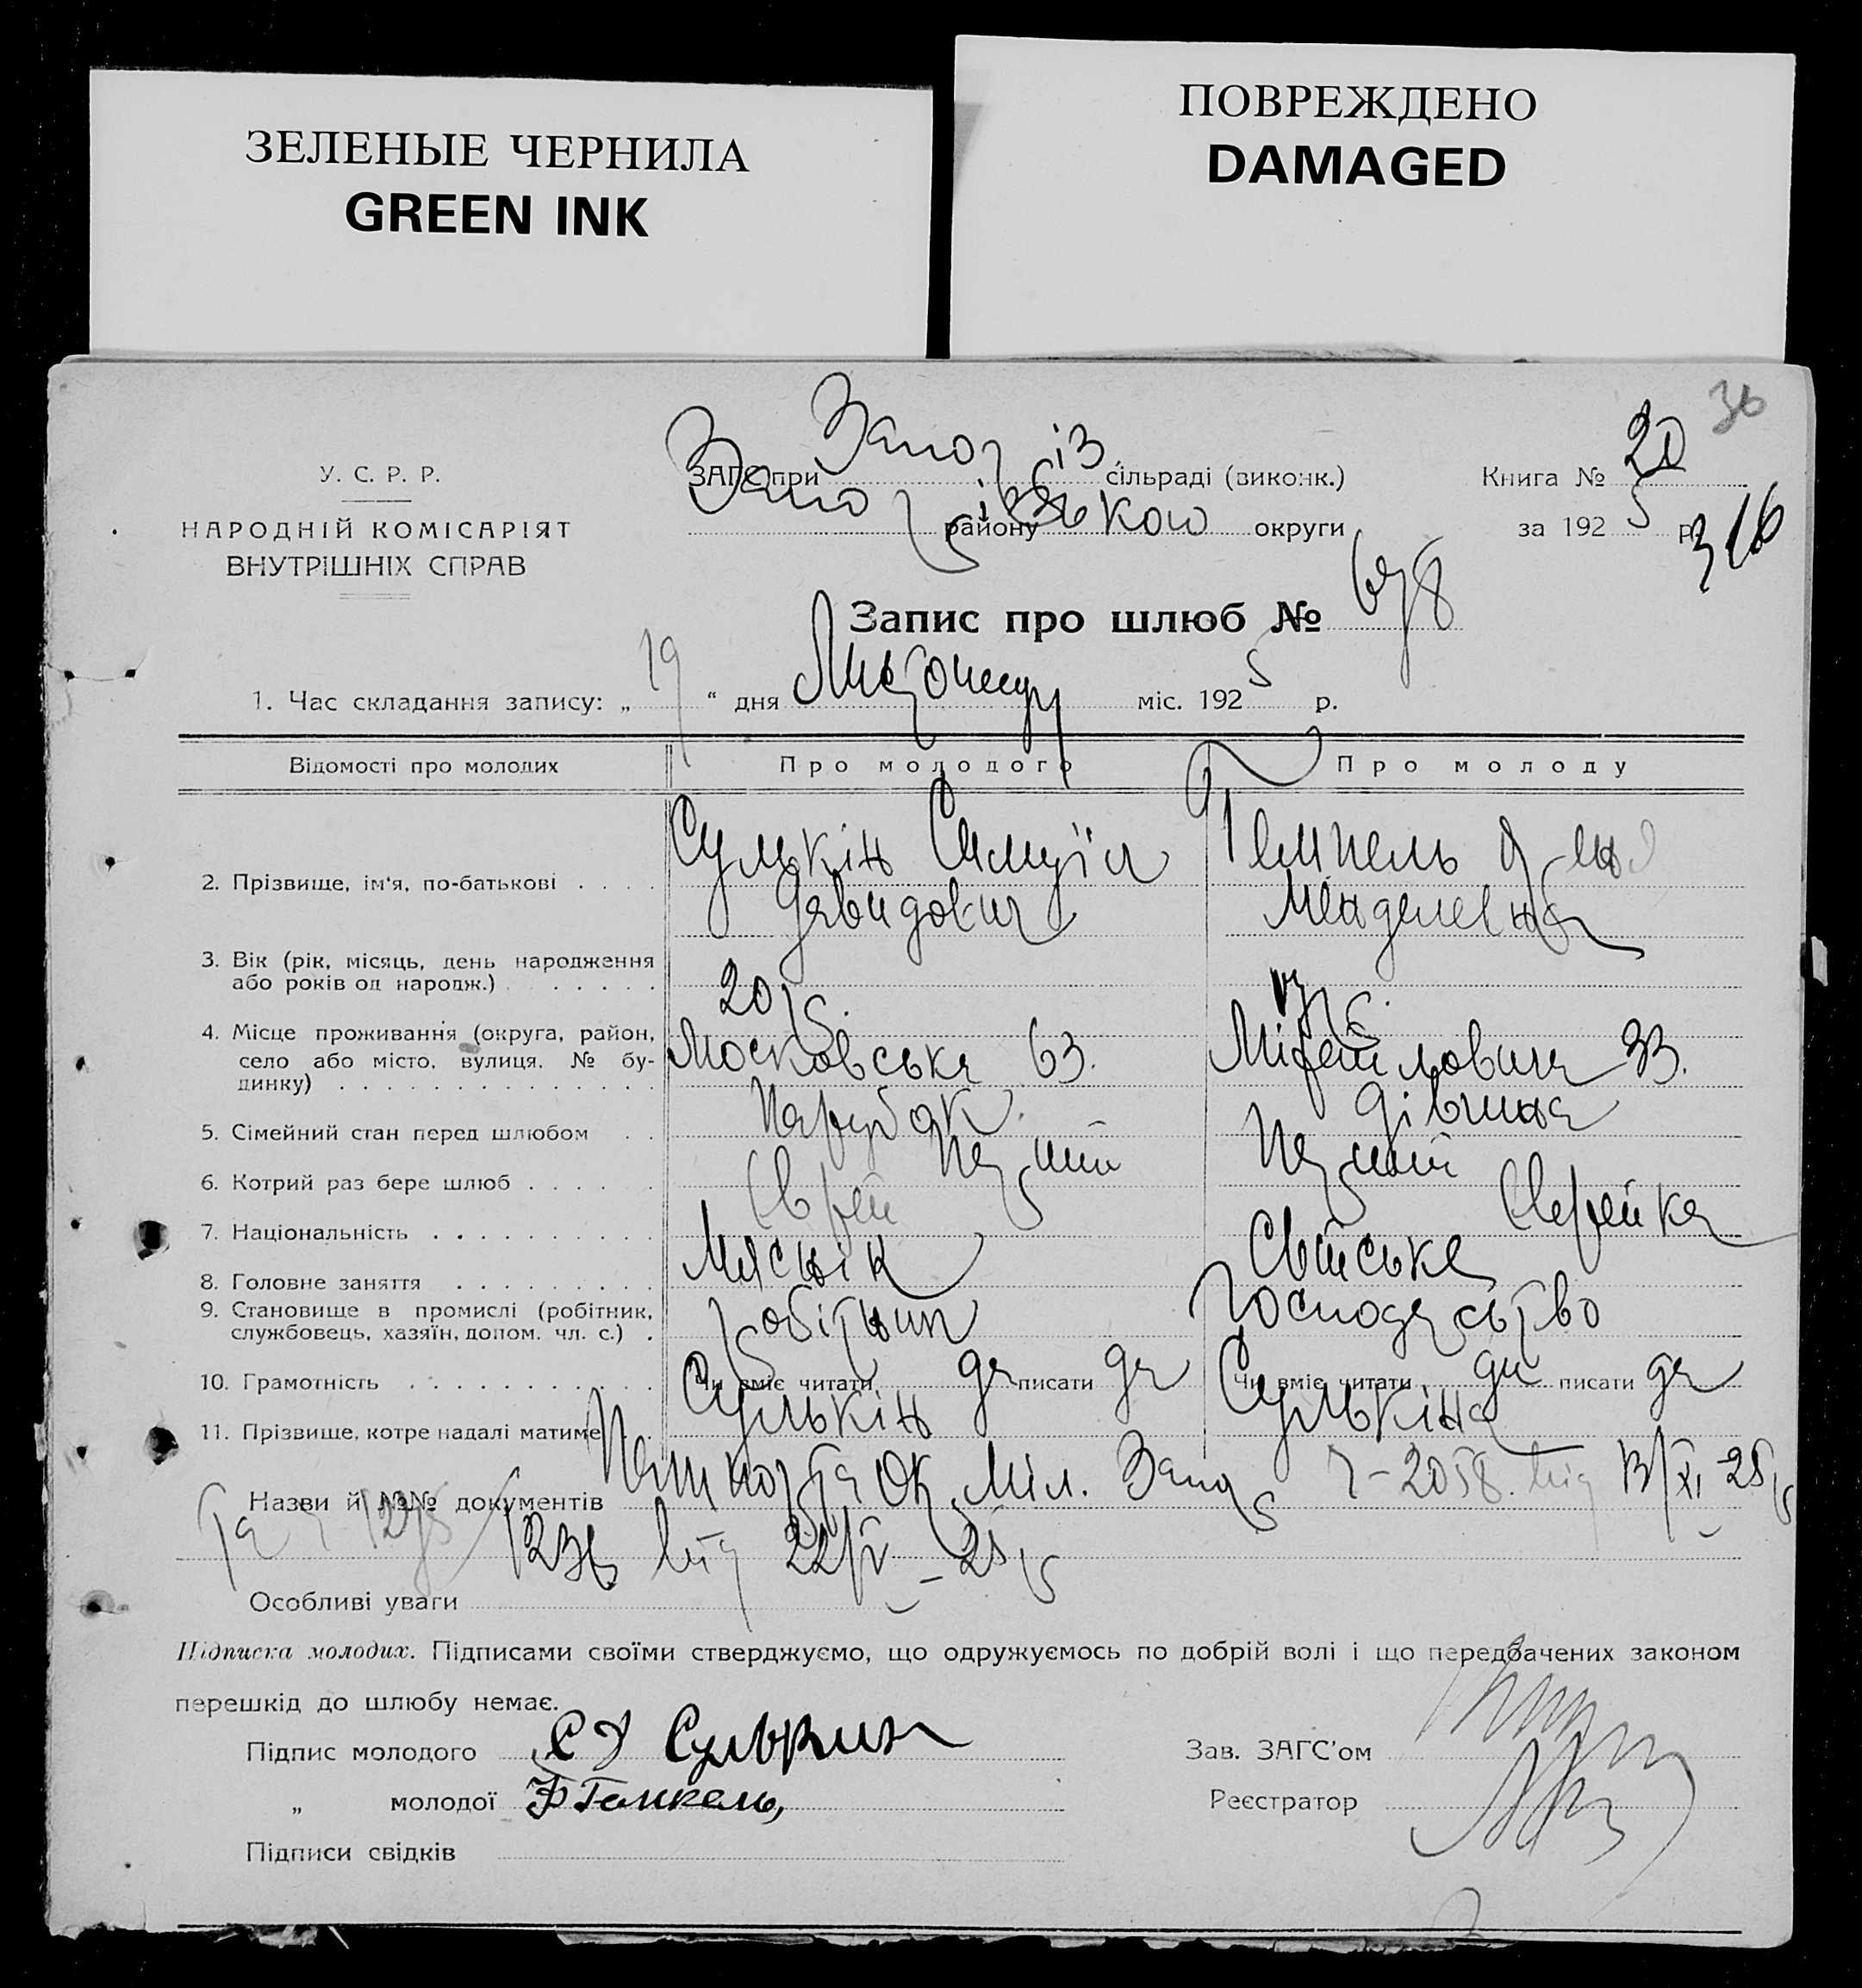 ЗЕЛЕНЫЕ ЧЕРНИЛА
GREEN INK
ПОВРЕЖДЕНО
DAMAGED
36
У. С. Р. Р.
НАРОДНІЙ КОМІСАРІЯТ
ВНУТРІШНІХ СПРАВ
ЗАГС при Запоріз сільраді (виконк.)
Запорізькою району округи
Книга № 20
за 1925 р.
316
Запис про шлюб № 678
1. Час складання запису: „ 19 “ дня Листопаду міс. 1925 р.
Відомості про молодих Про молодого Про молоду
2. Прізвище, ім‘я, по-батькові . . . . Сулькін Самуїл Давидович Менделевна
3. Вік (рік, місяць, день народження або років од народж.) . . . . . . 20 р. 17 р.
4. Місце проживання (округа, район, село або місто, вулиця, № будинку) . . . . . Московська 63. 33.
5. Сімейний стан перед шлюбом . . Парубок. Дівчина
6. Котрий раз бере шлюб . . . . . Перший Перший
7. Національність . . . . . . . . . . Єврей Єврейка
8. Головне заняття . . . . . . . . . Мясник Свійське
9. Становище в промислі (робітник, службовець, хазяїн, допом. чл. с.) . робітник господарство
10. Грамотність . . . . . . . . . . . Чи вміє читати да писати да Чи вміє читати да писати да
11. Прізвище, котре надалі матиме . . Сулькін Сулькіна
Назви й №№ документів Паспорта Окр. Міл. Запор 2058 від 13/XI-25 р
та 1236 від 22/V-25 р
Особливі уваги
Підписка молодих. Підписами своїми стверджуємо, що одружуємось по добрій волі і що передбачених законом
перешкід до шлюбу немає.
Підпис молодого С Д Сулькин
Зав. ЗАГС'ом
„ молодої
Реєстратор
Підписи свідків